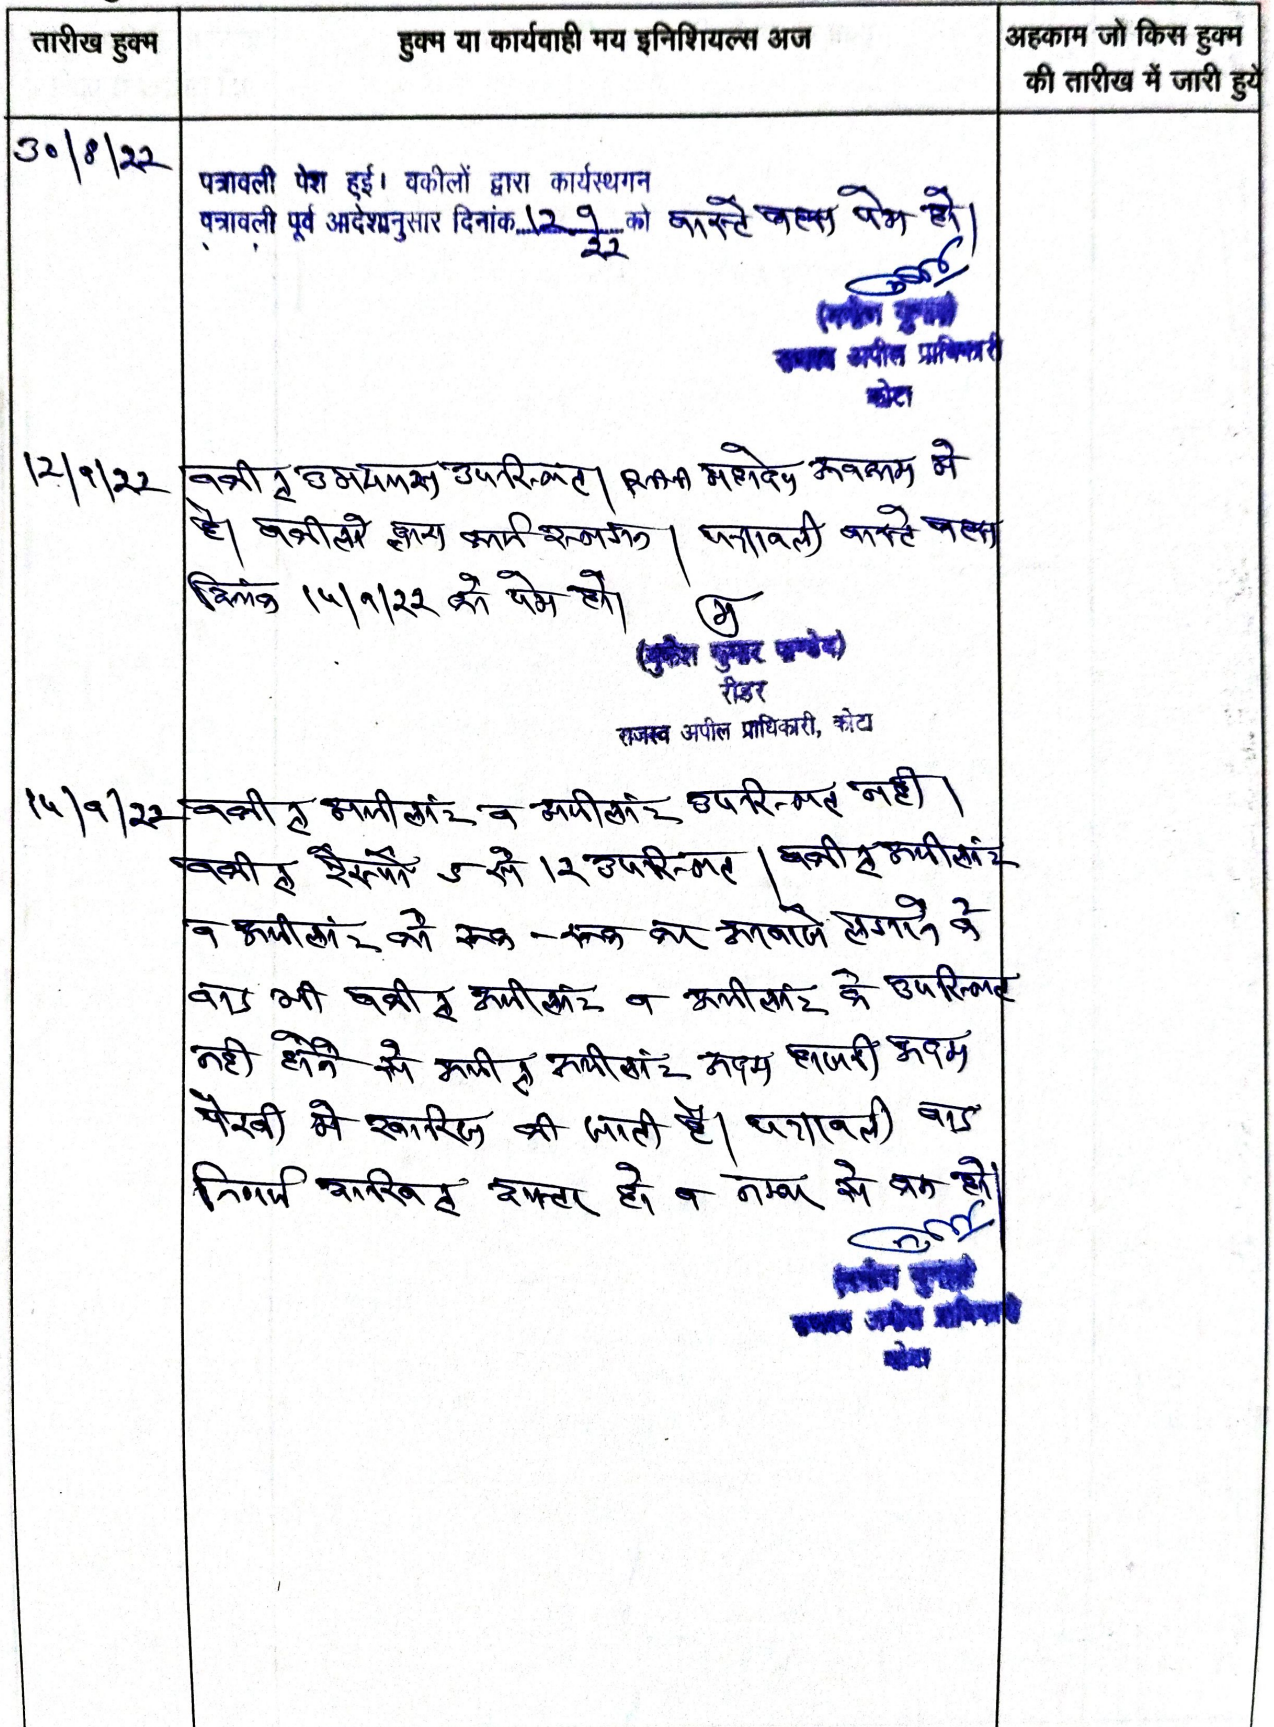 तारीख हुक्म
हुक्म या कार्यवाही मय इनिशियल्स अज
अहकाम जो किस हुक्म
की तारीख में जारी हुये
30/8/22
पत्रावली पेश हुई। वकीलों द्वारा कार्यस्थगन
पत्रावली पूर्व आदेशानुसार दिनांक 12/9/22 को वास्ते बहस पेश हो।
अपील प्राधिकारी
कोटा
12/9/22
वकील उभयपक्ष उपस्थित। महोदय अवकाश में
है। वकीलो द्वारा कार्य स्थगन। पत्रावली वास्ते बहस
दिनांक 15/9/22 को पेश हो।
(मुकेश कुमार पाण्डेय)
रीडर
राजस्व अपील प्राधिकारी, कोटा
15/9/22
वकील अपीलांट व अपीलांट उपस्थित नही।
वकील रेस्पो 5 से 12 उपस्थित। वकील अपीलांट
व अपीलांट को रूक-रूक कर आवाजे लगाने के
बाद भी वकील अपीलांट व अपीलांट के उपस्थित
नही होने से अपील अपीलांट अदम हाजरी अदम
पैरवी मे खारिज की जाती है। पत्रावली बाद
निर्णय दाखिल दफ्तर हो व नम्बर से कम हो।